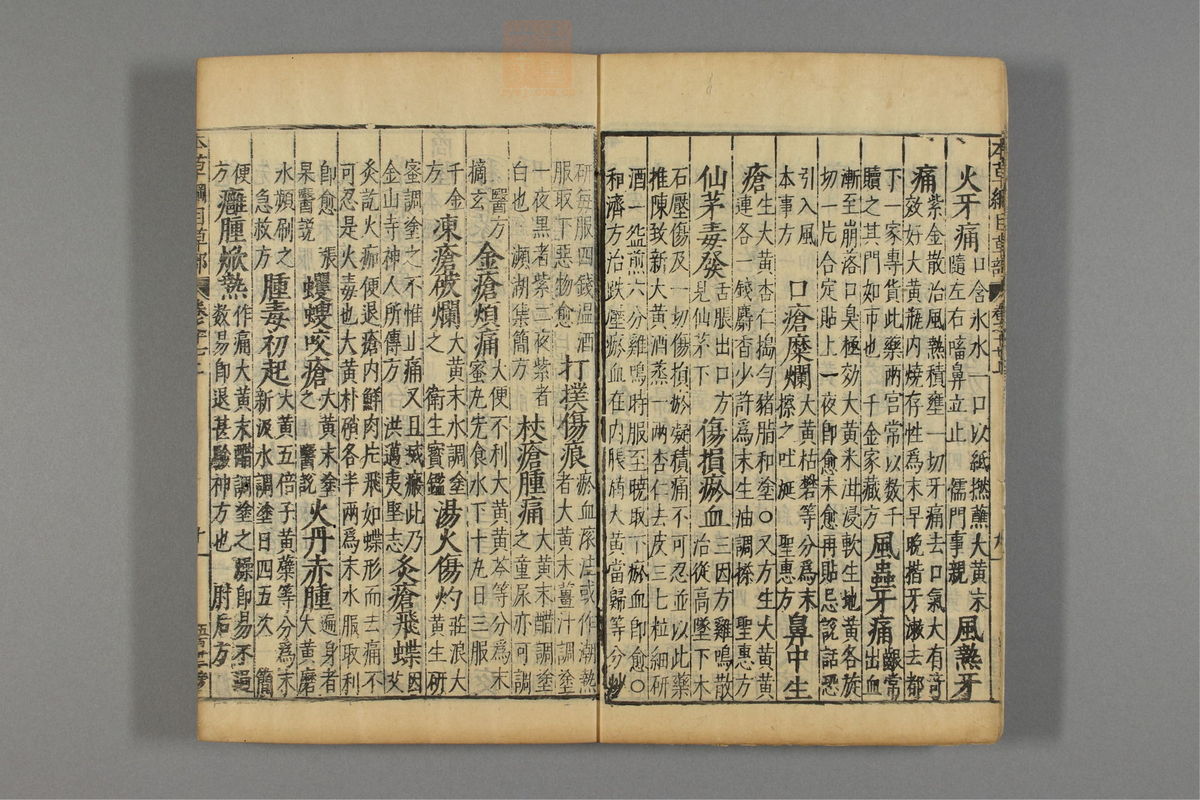 火牙痛 口含冰水一口以紙撚蘸大黃末
隨左右㗜鼻立止 儒門事親 風熱牙
痛 紫金散治風熱積壅一切牙痛去口氣大有奇
效好大黃瓶內燒存性爲末早晚揩牙漱去都
下一家專貨此藥兩宮常以數千
贖之其門如市也 千金家藏方 風蟲牙痛 齦常
出血
漸至崩落口臭極効大黃米泔浸軟生地黃各旋
切一片合定貼上一夜即愈未愈再貼忌說話恐
引入風
本事方 口瘡糜爛 大黃枯礬等分爲末
擦之吐涎 聖惠方 鼻中生
瘡 生大黃杏仁搗勻豬脂和塗○又方生大黃黃
連各一錢麝香少許爲末生油調搽 聖惠方
仙茅毒發 舌脹出口方
見仙茅下 傷損瘀血 三因方雞鳴散
治從高墜下木
石壓傷及一切傷損瘀凝積痛不可忍並以此藥
推陳致新大黃酒蒸一兩杏仁去皮三七粒細研
酒一盌煎六分雞鳴時服至曉取下瘀血即愈○
和濟方治跌壓瘀血在內脹滿大黃當歸等分炒
研每服四錢温酒
服取下惡物愈 打撲傷痕 瘀血滚注或作潮熱
者大黃末薑汁調塗
一夜黑者紫二夜紫者
白也 瀕湖集簡方 杖瘡腫痛 大黃末醋調塗
之童尿亦可調
醫方
摘玄 金瘡煩痛 大便不利大黃黃芩等分爲末
蜜丸先食水下十丸日三服
千金
方 凍瘡破爛 大黃末水調塗
之 衛生寳鑑 湯火傷灼 莊浪大
黃生研
蜜調塗之不惟止痛又且滅瘢此乃
金山寺神人所傳方 洪邁夷堅志 灸瘡飛蝶 因
艾
灸訖火痂便退瘡內鮮肉片飛如蝶形而去痛不
可忍是火毒也大黃朴硝各半兩爲末水服取利
即愈 張
杲醫說 蠼螋咬瘡 大黃末塗
之 醫說 火丹赤腫 遍身者
大黃磨
水頻刷之
急救方 腫毒初起 大黃五倍子黃蘗等分爲末
新汲水調塗日四五次 簡
便
方 癰腫焮熱 作痛大黃末醋調塗之燥即易不過
數易即退甚驗神方也 肘后方